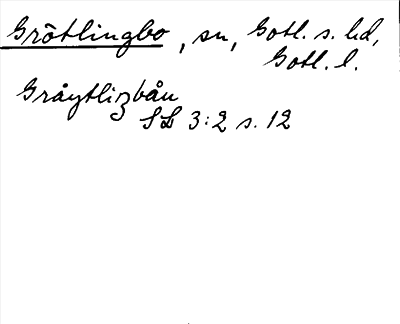 Grötlingbo, sn, Gotl. s. hd,
Gotl. l.
Gråytliŋbån
SL 3:2 s. 12